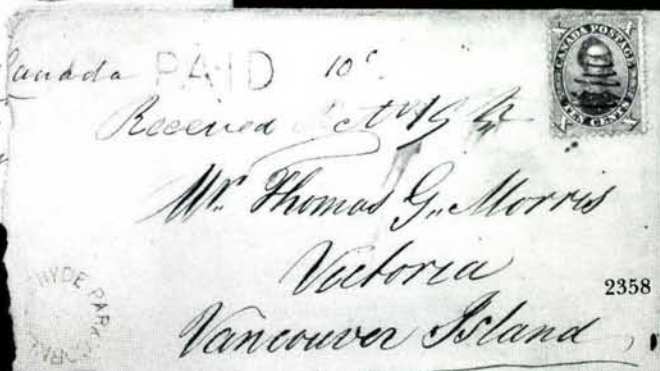 Canada PAID 10c
CANADA POSTAGE
TEN CENTS
Received Oct 19
Mr. Thomas G. Morris
Victoria
2358
Vancouver Island
HYDE PARK